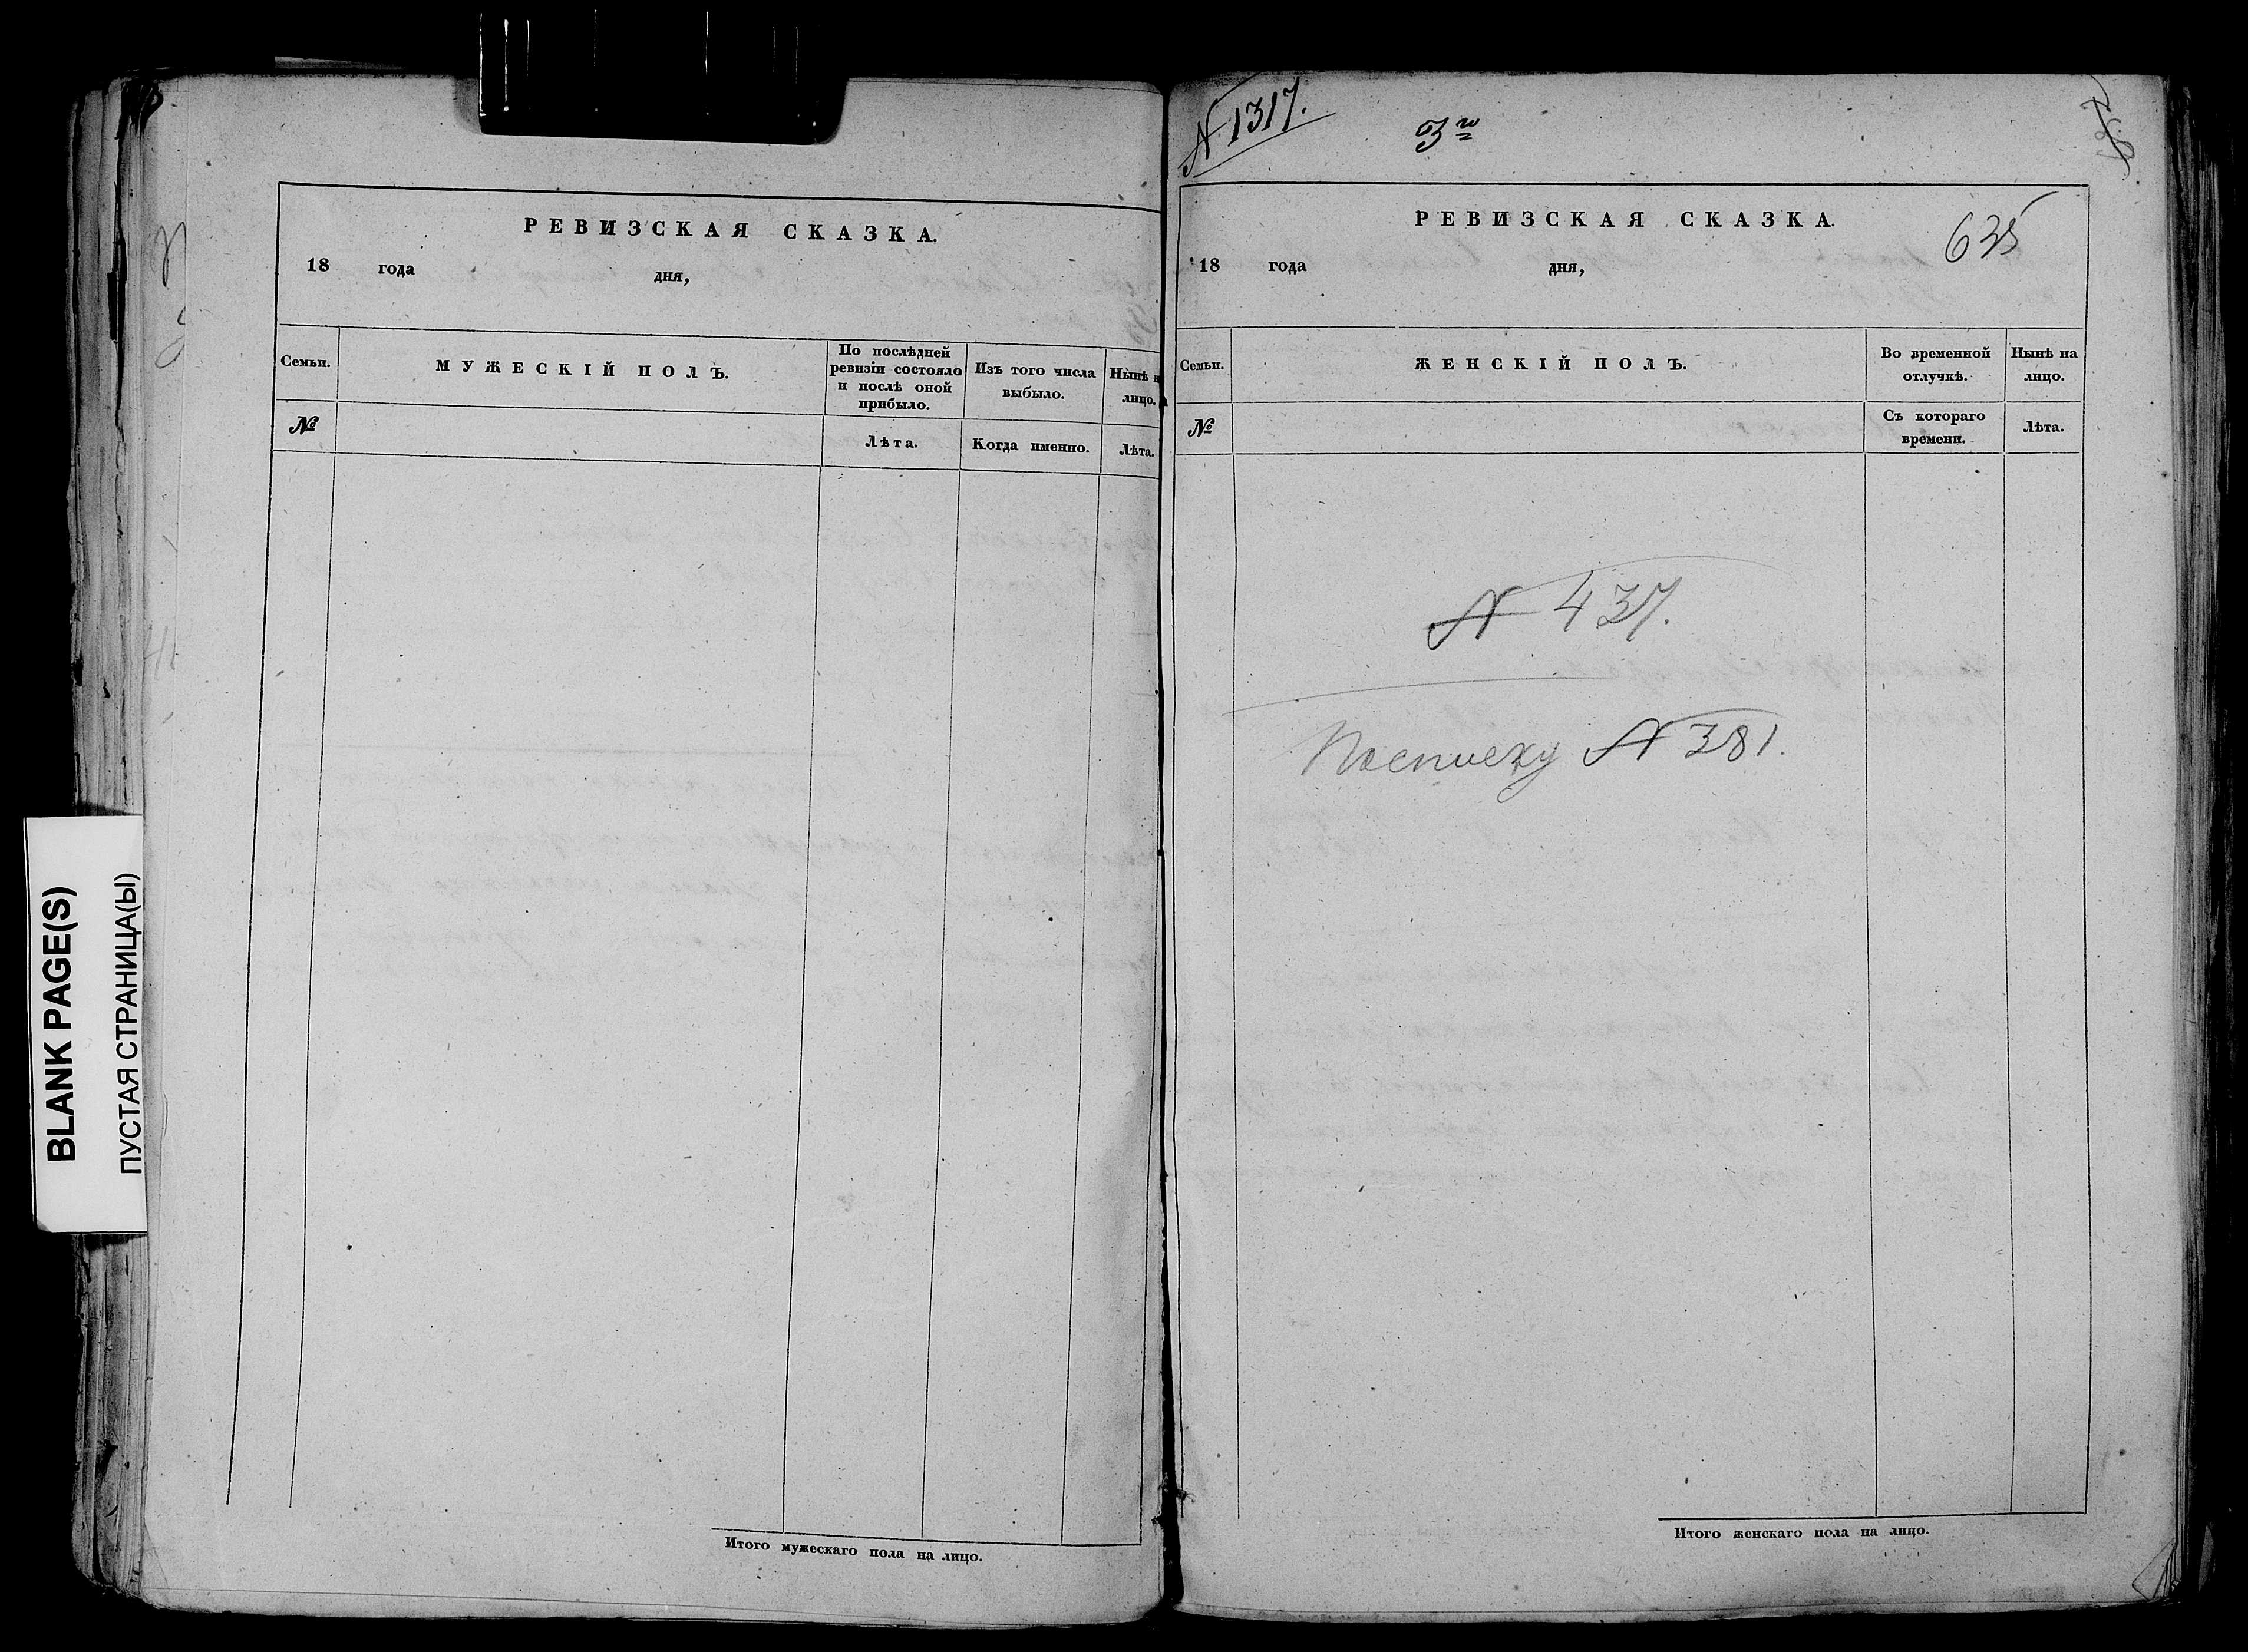 BLANK PAGE(S)
ПУСТАЯ СТРАНИЦА(Ы)
РЕВИЗСКАЯ СКАЗКА.
18 года дня,
Семьи.
МУЖЕСКІЙ ПОЛЪ.
По послѣдней
ревизіи состояло
и послѣ оной
прибыло.
Изъ того числа
выбыло.
Нынѣ
лицо.
№
Лѣта.
Когда именно.
Лѣта.
Итого мужескаго пола на лицо.
N 1317.
3го
РЕВИЗСКАЯ СКАЗКА.
635
18 года дня,
Семьи.
ЖЕНСКІЙ ПОЛЪ.
Во временной
отлучкѣ.
Нынѣ на
лицо.
№
Съ котораго
времени.
Лѣта.
N 437.
По списку N 381.
Итого женскаго пола на лицо.